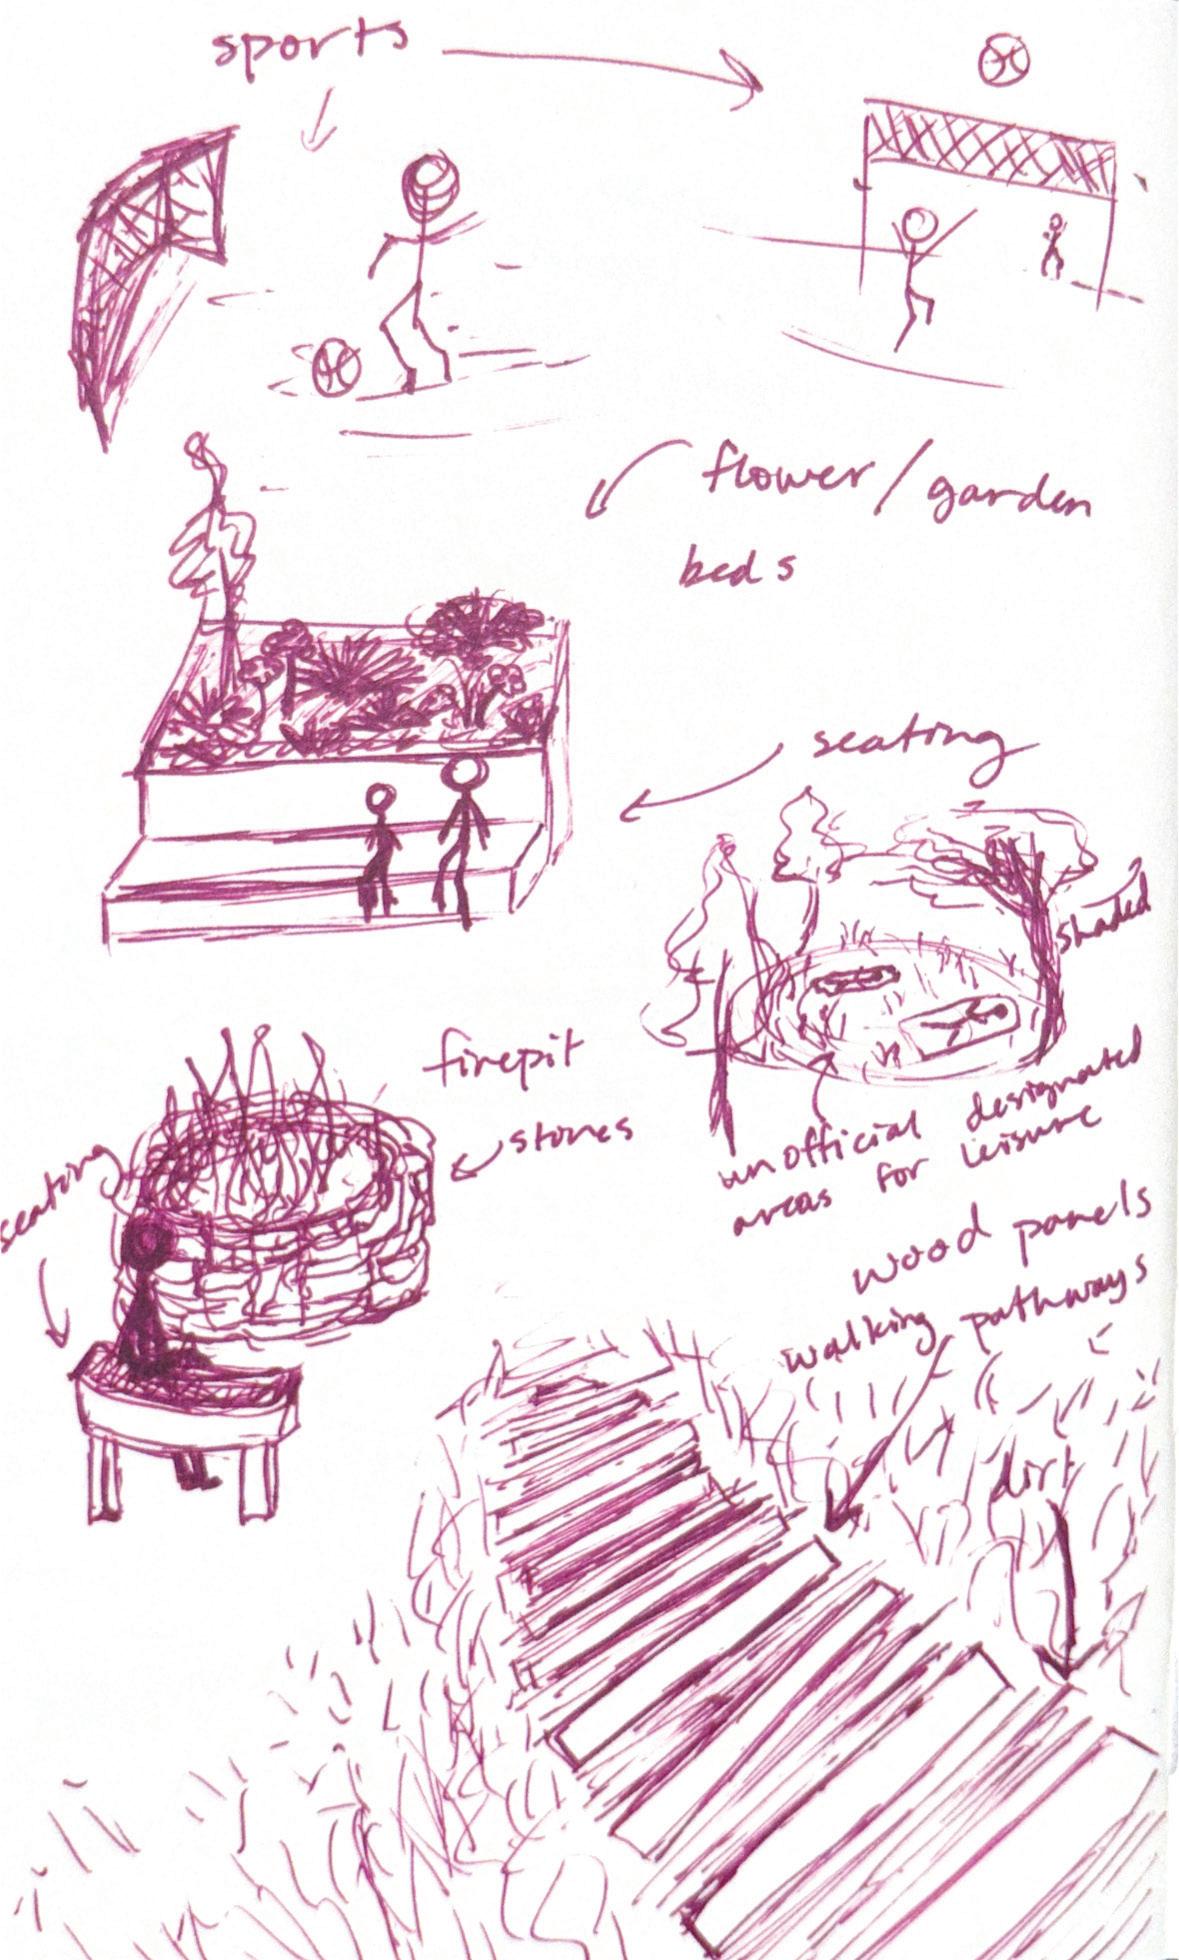 sports
flower / garden
beds
seating
shaded
firepit
stones
seating
unofficial designated
areas for leisure
wood panels
walking pathways
dirt